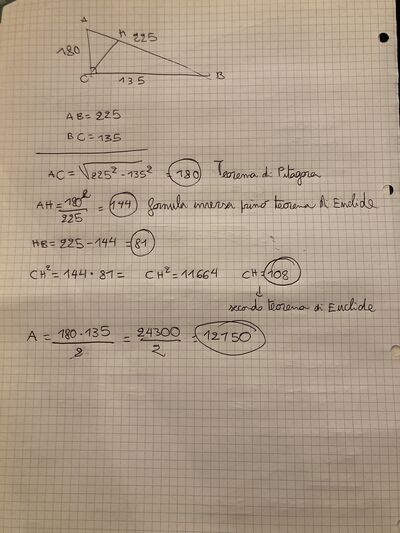 A
H
225
180
C
135
B
AB = 225
BC = 135
AC = √225² - 135² = 180 Teorema di Pitagora
AH = 180²/225 = 144 formula inversa primo teorema di Euclide
HB = 225 - 144 = 81
CH² = 144 · 81 = CH² = 11664 CH = 108
↓
secondo teorema di Euclide
A = 180 · 135/2 = 24300/2 = 12150